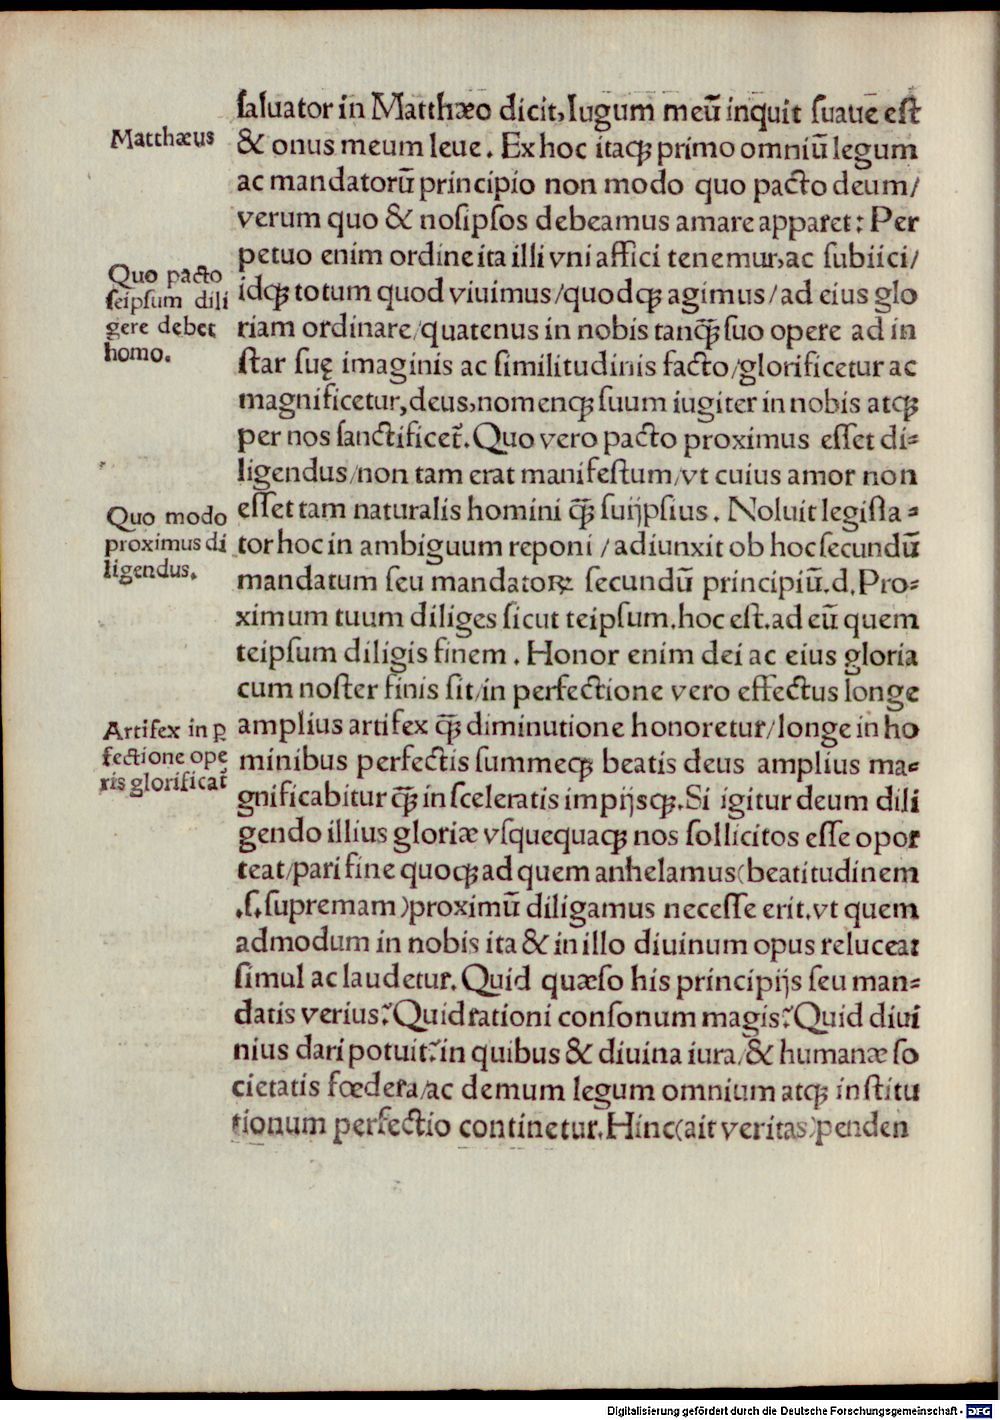 Matthæus
Quo pacto
ſeipſum dili
gere debet
homo.
Quo modo
proximus di
ligendus.
Artifex in ꝑ
fectione opę
ris glorificat᷑
ſaluator in Matthæo dicit, Iugum meū inquit ſuaue eſt
& onus meum leue. Ex hoc itaqꝫ primo omniū legum
ac mandatorū principio non modo quo pacto deum/
verum quo & noſipſos debeamus amare apparet: Per
petuo enim ordine ita illi vni affici tenemur, ac ſubiici/
idqꝫ totum quod viuimus/quodqꝫ agimus/ad eius glo
riam ordinare/quatenus in nobis tanqꝫ̄ ſuo opere ad in
ſtar ſuę imaginis ac ſimilitudinis facto/glorificetur ac
magnificetur, deus, nomenqꝫ ſuum iugiter in nobis atqꝫ
per nos ſanctificet᷑. Quo vero pacto proximus eſſet di⸗
ligendus/non tam erat manifeſtum/vt cuius amor non
eſſet tam naturalis homini qꝫ̄ ſuiipſius. Noluit legiſla⸗
tor hoc in ambiguum reponi/adiunxit ob hoc ſecundū
mandatum ſeu mandatoꝝ ſecundū principiū.d. Pro⸗
ximum tuum diliges ſicut teipſum.hoc eſt.ad eū quem
teipſum diligis finem. Honor enim dei ac eius gloria
cum noſter finis ſit/in perfectione vero effectus longe
amplius artifex qꝫ̄ diminutione honoretur/longe in ho
minibus perfectis ſummeqꝫ beatis deus amplius ma⸗
gnificabitur qꝫ̄ in ſceleratis impijsqꝫ. Si igitur deum dili
gendo illius gloriæ vſquequaqꝫ nos ſollicitos eſſe opor
teat/pari fine quoqꝫ ad quem anhelamus(beatitudinem
.ſ.ſupremam)proximū diligamus neceſſe erit.vt quem
admodum in nobis ita & in illo diuinum opus reluceat
ſimul ac laudetur. Quid quæſo his principijs ſeu man⸗
datis verius? Quid rationi conſonum magis? Quid diui
nius dari potuit? in quibus & diuina iura/& humanæ ſo
cietatis fœdera/ac demum legum omnium atqꝫ inſtitu
tionum perfectio continetur. Hinc(ait veritas)penden
Digitalisierung gefördert durch die Deutsche Forschungsgemeinschaft - DFG